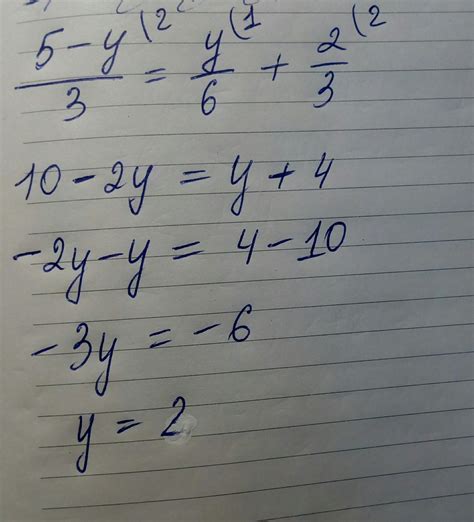 (5-y)/3 (2 = y/6 (1 + 2/3 (2
10-2y = y+4
-2y-y = 4-10
-3y = -6
y = 2